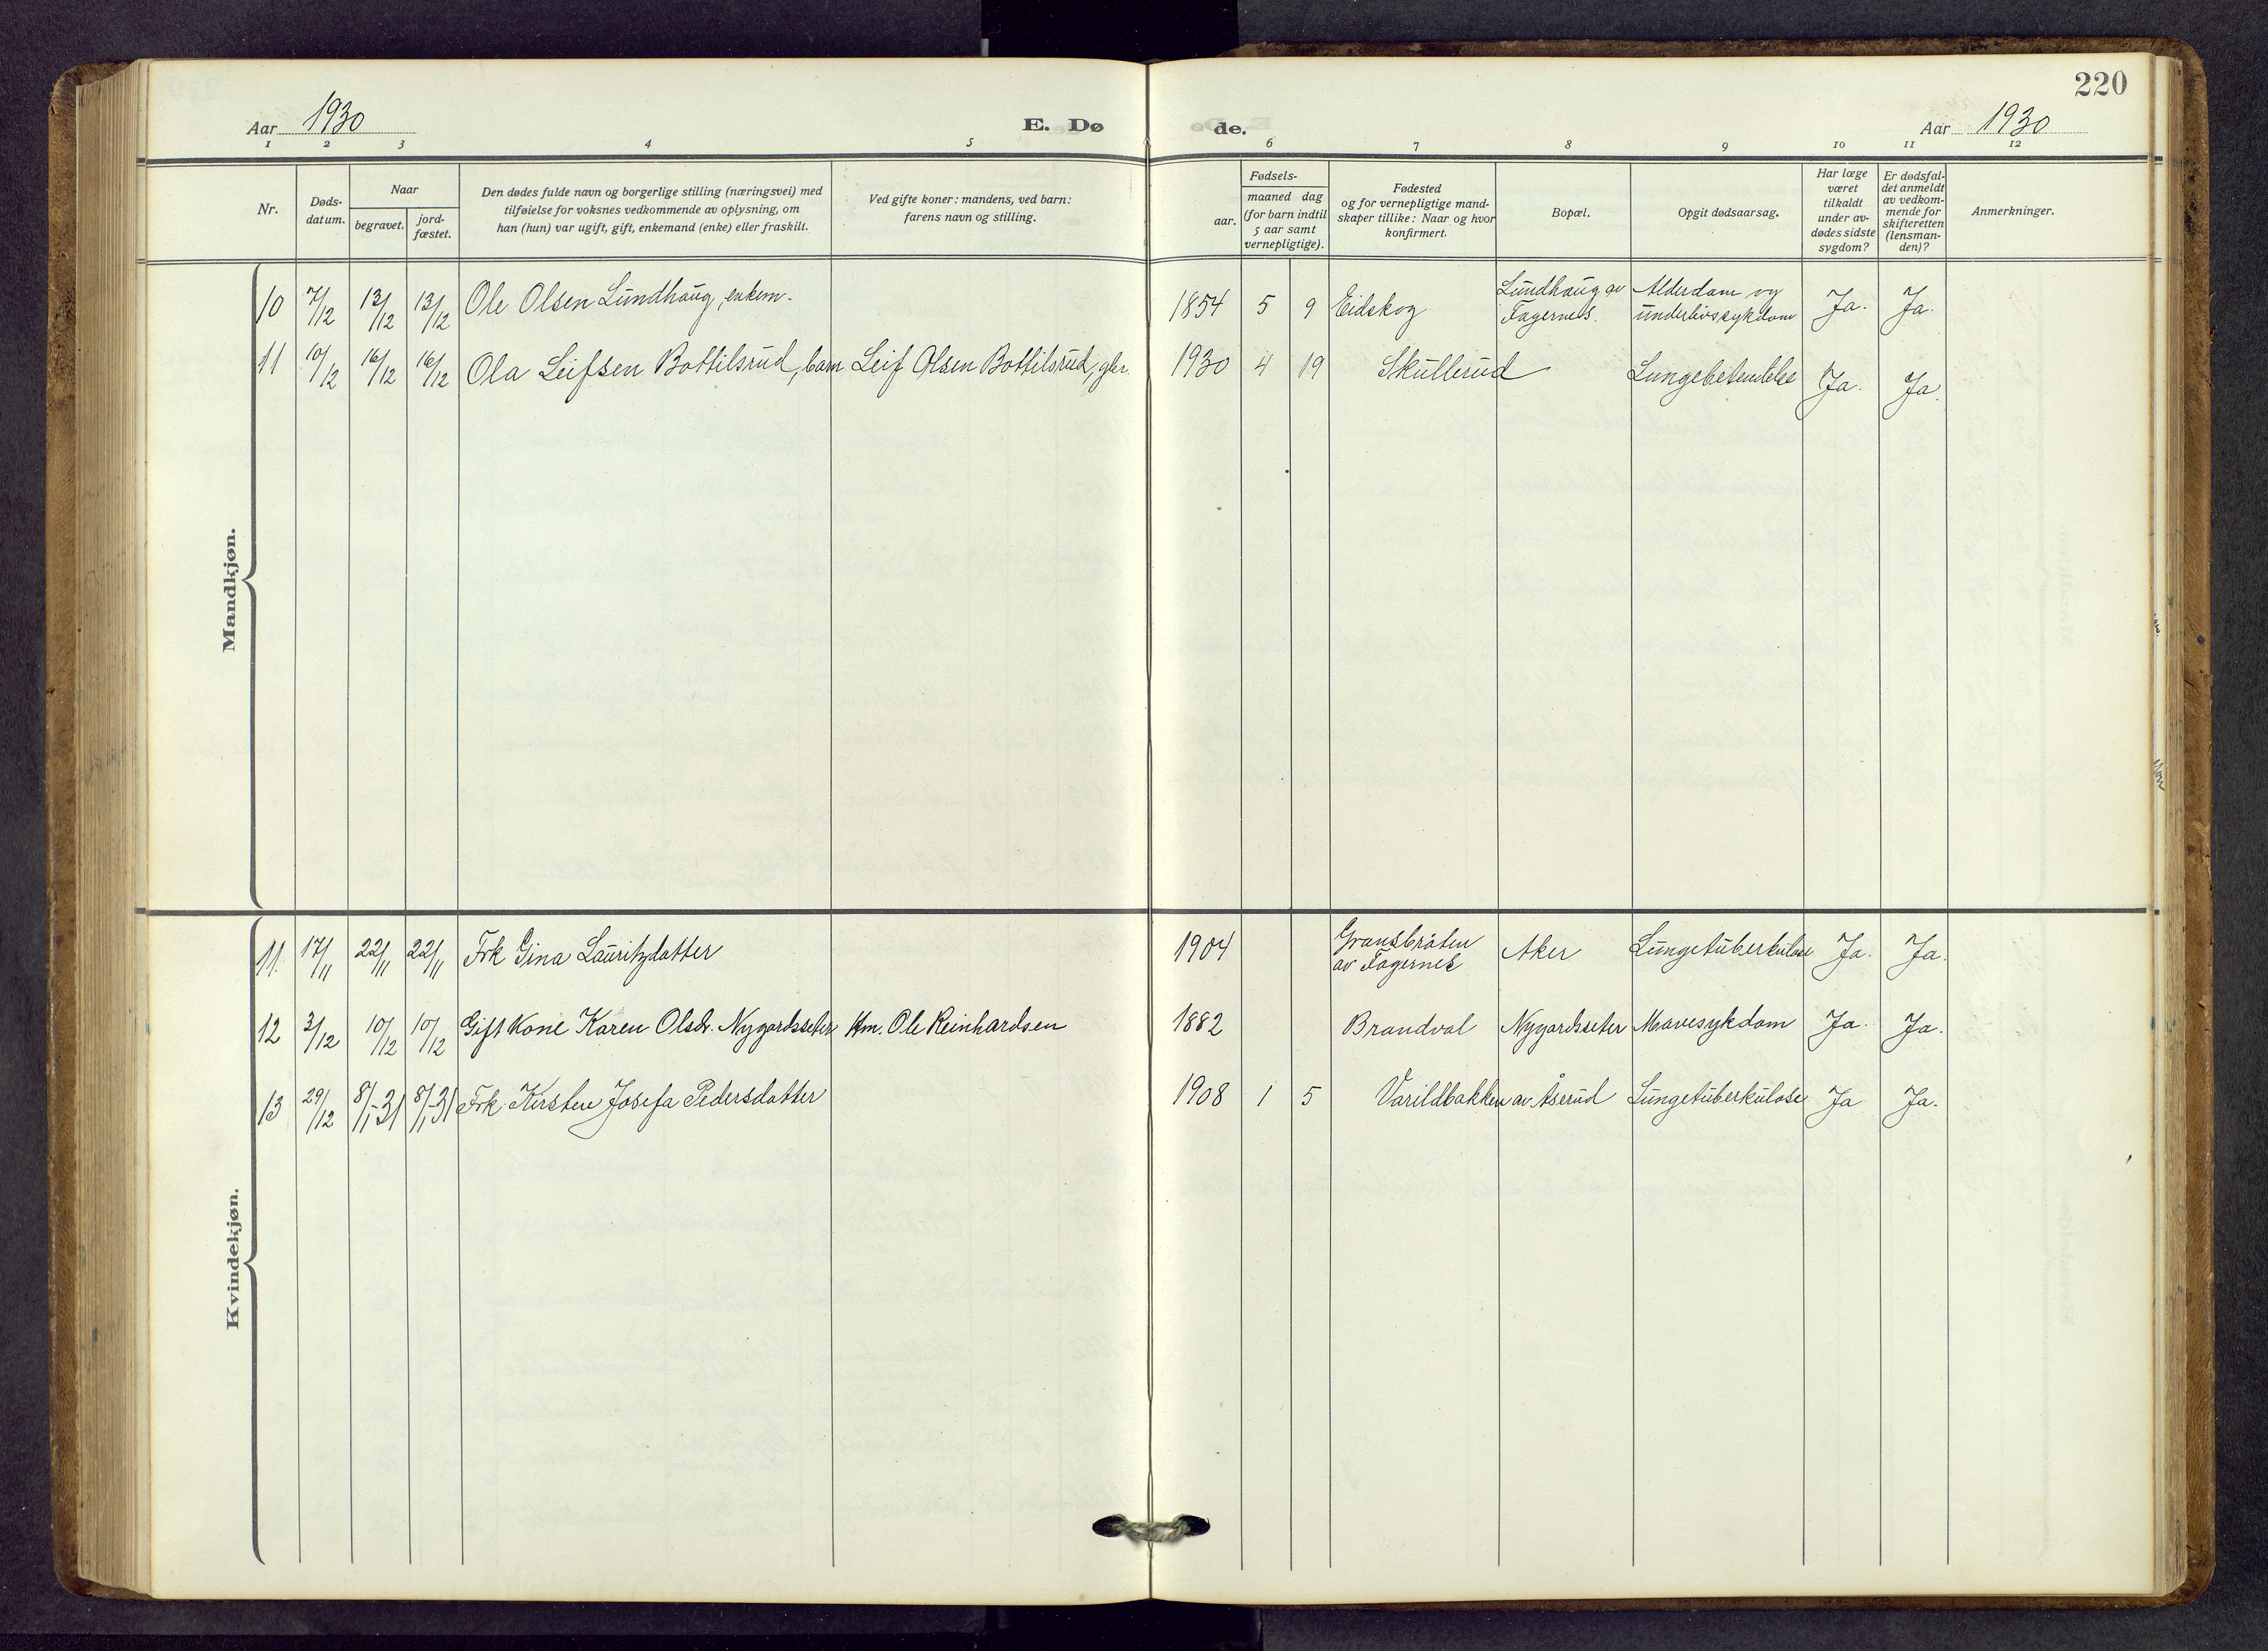 220
Aar 1930
E. Dø
de.
Aar 1930
1 2 3 4 5 6 7 8 9 10 11 12
Nr.
Døds-
datum.
Naar
begravet.
jord-
fæstet.
Den dødes fulde navn og borgerlige stilling (næringsvei) med
tilføielse for voksnes vedkommende av oplysning, om
han (hun) var ugift, gift, enkemand (enke) eller fraskilt.
Ved gifte koner: mandens, ved barn:
farens navn og stilling.
Fødsels-
aar.
maaned dag
(for barn indtil
5 aar samt
vernepligtige).
Fødested
og for vernepligtige mand-
skaper tillike: Naar og hvor
konfirmert.
Bopæl.
Opgit dødsaarsag.
Har læge
været
tilkaldt
under av-
dødes sidste
sygdom?
Er dødsfal-
det anmeldt
av vedkom-
mende for
skifteretten
(lensman-
den)?
Anmerkninger.
Mandkjøn.
10 7/12 13/12 13/12 Ole Olsen Lundhaug, enkem. 1854 5 9 Eidskog Lundhaug av Fagernes. Alderdom og underlivssykdom Ja. Ja.
11 10/12 16/12 16/12 Ola Leifsen Bottilsrud, barn Leif Olsen Bottilsrud, gbr. 1930 4 19 Skullerud Lungebetendelse Ja. Ja.
Kvindekjøn.
11. 17/11 22/11 22/11 Frk Gina Lauritzdatter 1904 Gransbråten av Fagernes Aker Lungetuberkulose Ja. Ja.
12 3/12 10/12 10/12 Gift Kone Karen Olsdr. Nygardsseter Km. Ole Reinhardsen 1882 Brandval Nygardsseter Mavesykdom Ja. Ja.
13 29/12 8/1-31 8/1-31 Frk Kirsten Josefa Pedersdatter 1908 1 5 Varildbakken av Åserud Lungetuberkulose Ja Ja.